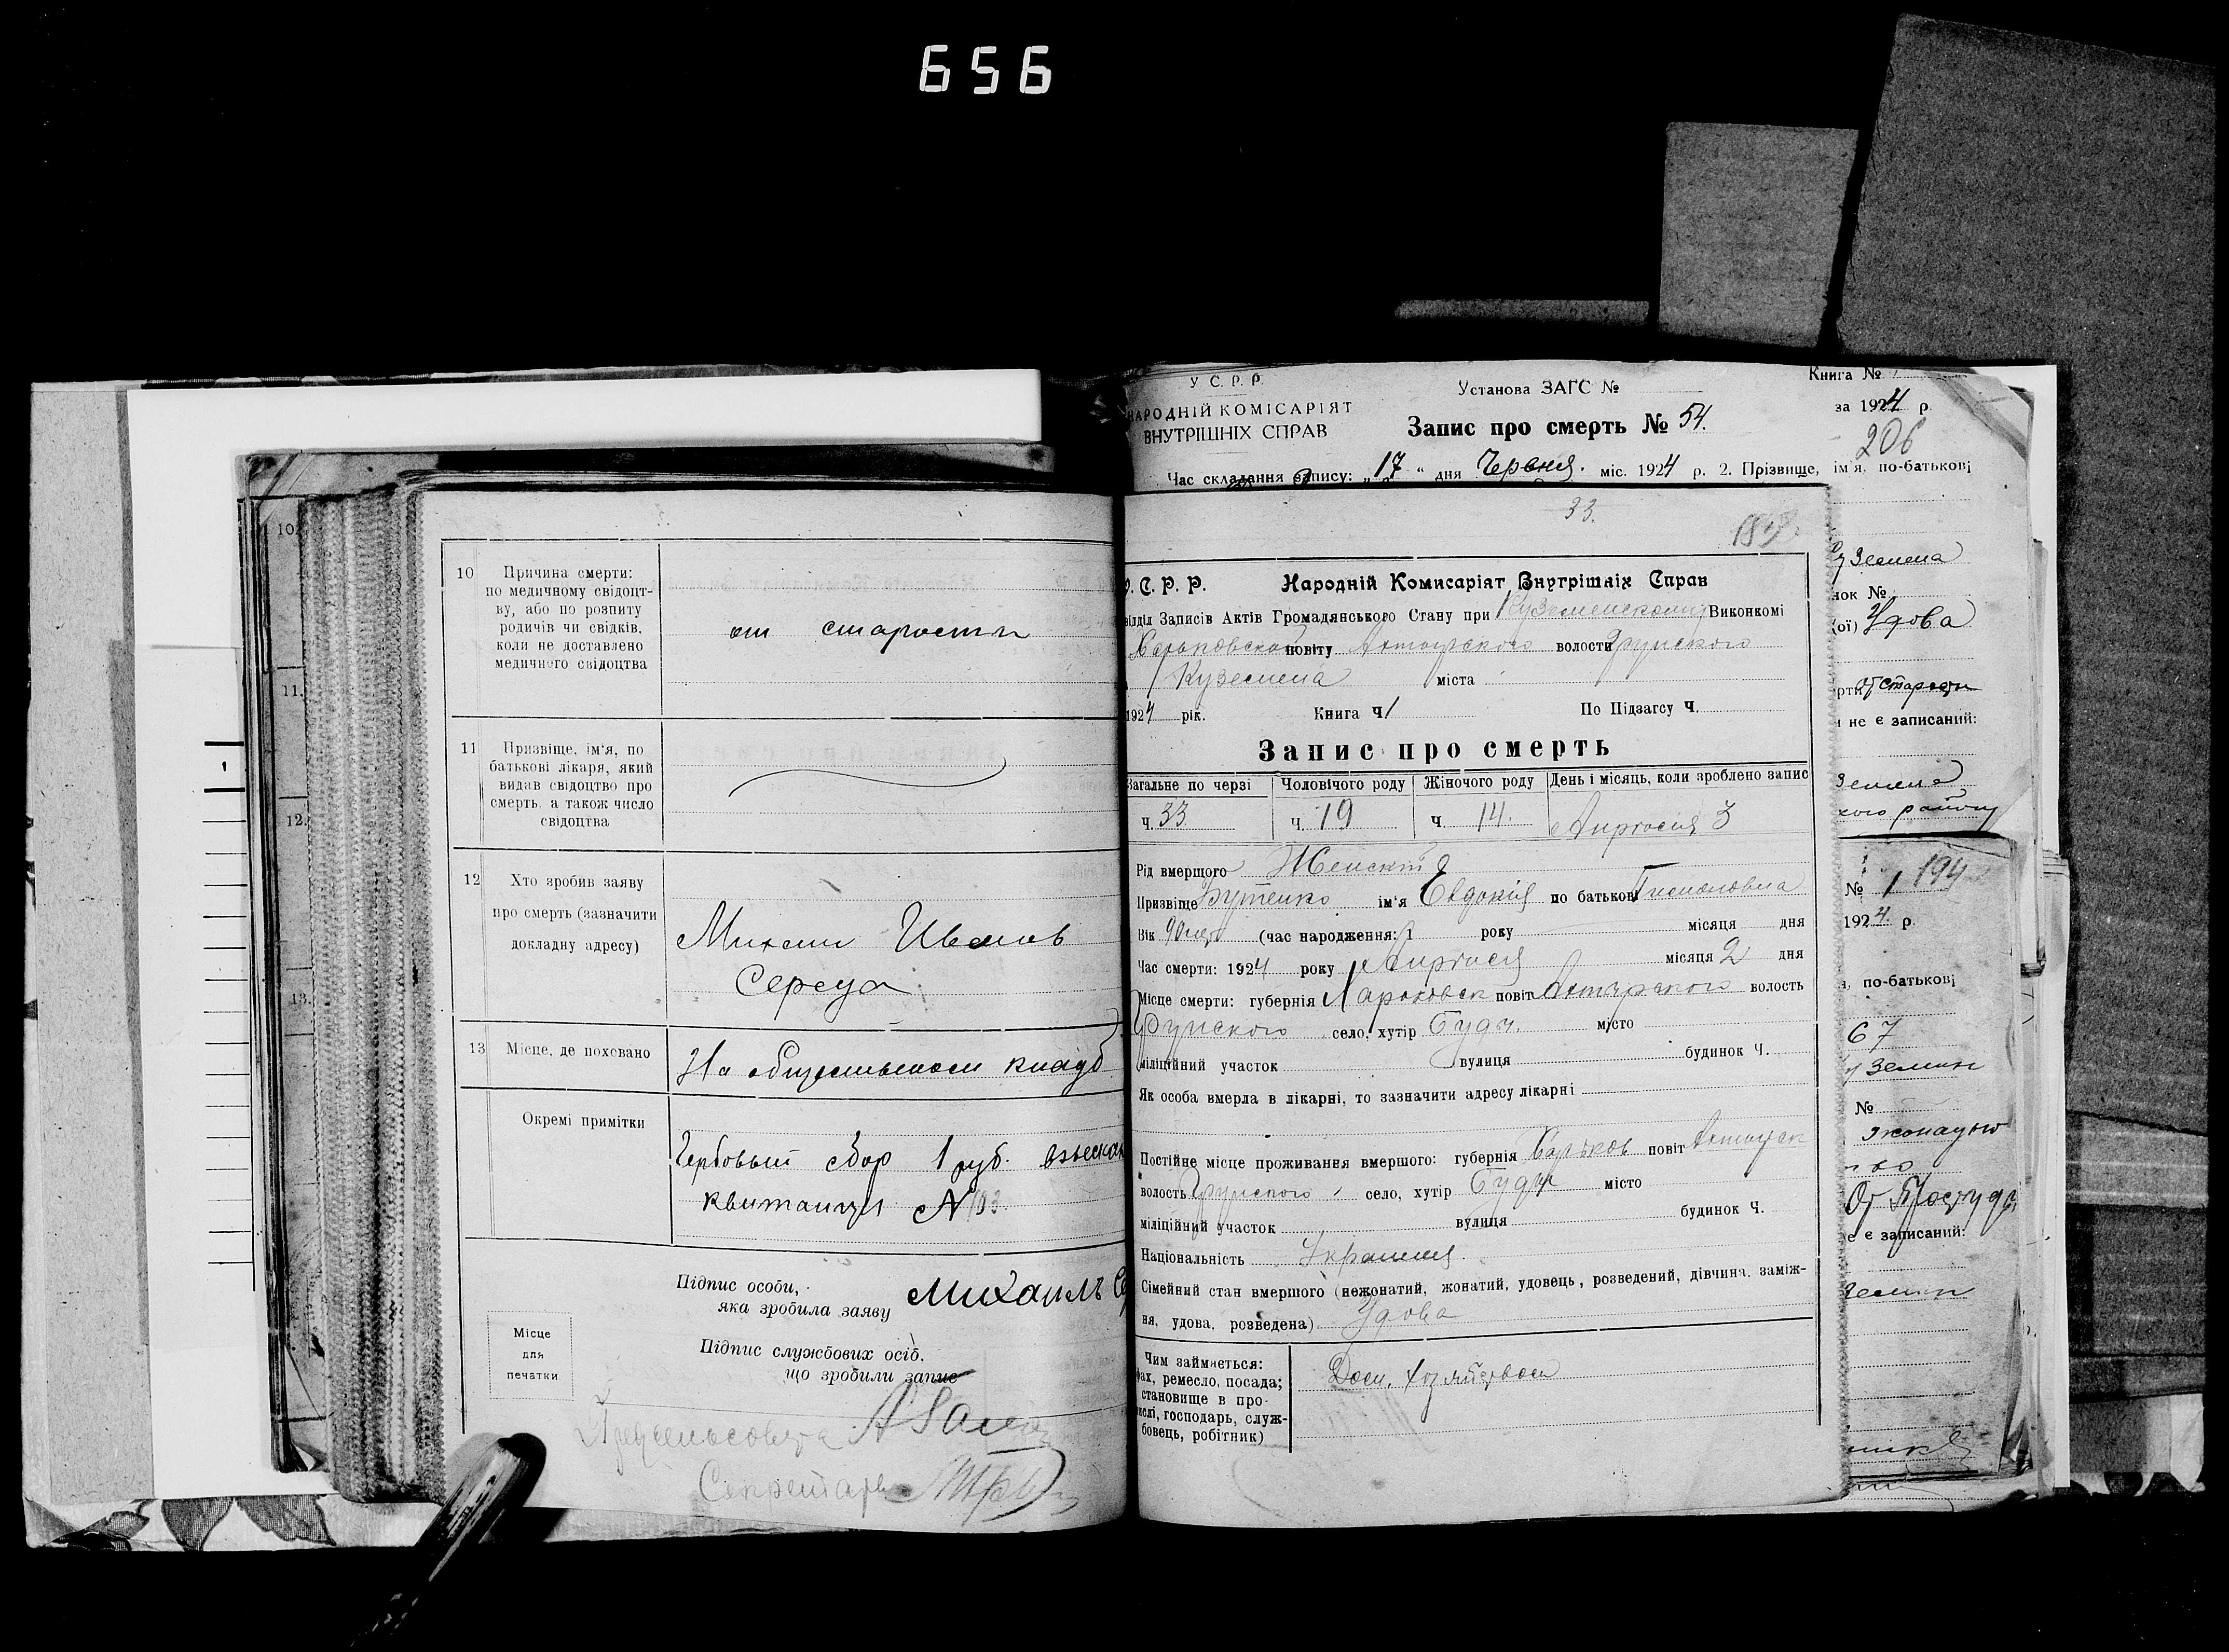 656
10
Причина смерти:
по медичному свідоцт-
ву, або по розпиту
родичів чи свідків,
коли не доставлено
медичного свідоцтва
от старости
11
Призвіще, ім'я, по
батькові лікаря, який
видав свідоцтво про
смерть, а також число
свідоцтва
12
Хто зробив заяву
про смерть (зазначити
докладну адресу)
Михаил Иванов
Середа
13
Місце, де поховано
На общественном кладб
Окремі примітки
Гербовый сбор 1 руб. взыскан
квитанция № 103
Підпис особи,
яка зробила заяву
Михаилъ
Місце
для
печатки
Підпис службових осіб,
що зробили запис
Секретарь
10.
11.
12.
13.
1
У С. Р. Р.
НАРОДНІЙ КОМІСАРІЯТ
ВНУТРІШНІХ СПРАВ
Установа ЗАГС №
Запис про смерть № 54.
Книга №
за 1924 р.
206
Час складання запису: „17“ дня Червня міс. 1924 р. 2. Прізвище, ім'я, по-батькові
33.
У. С. Р. Р. Народній Комисаріят Внутрішніх Справ
відділ Записів Актів Громадянського Стану при Куземенском Виконкомі
Харьковской повіту Ахтырского волости Грунского
Куземена міста
1924 рік. Книга Ч 1 По Підзагсу Ч.
Запис про смерть
Загальне по черзі Чоловічого роду Жіночого роду День і місяць, коли зроблено запис
Ч. 33 Ч. 19 Ч 14. Апреля 3
Рід вмерщого Женский
Призвіще Бутенко ім'я Евдокія по батькові
Вік 90 (час народження: року місяця дня
Час смерти: 1924 року Апреля місяця 2 дня
Місце смерти: губернія Харьковск повіт Ахтырского волость
Грунского село, хутір Буды. місто
міліційний участок вулиця будинок Ч.
Як особа вмерла в лікарні, то зазначити адресу лікарні
Постійне місце проживання вмершого: губернія Харьков повіт Ахтырск
волость Грунского село, хутір Буды місто
міліційний участок вулиця будинок Ч.
Національність
Сімейний стан вмершого (нежонатий, жонатий, удовець, розведений, дівчина, заміж-
ня, удова, розведена) Удова
Чим займається:
фах, ремесло, посада;
становище в про-
мислі, господарь, служ-
бовець, робітник)
Дом. хозяйством
уземена
нок №
(ої) Удова
и не є записаний:
земена
кого району
№ 1 194
1924. р.
, по-батькові
67
№
От Простуды
е є записаний: